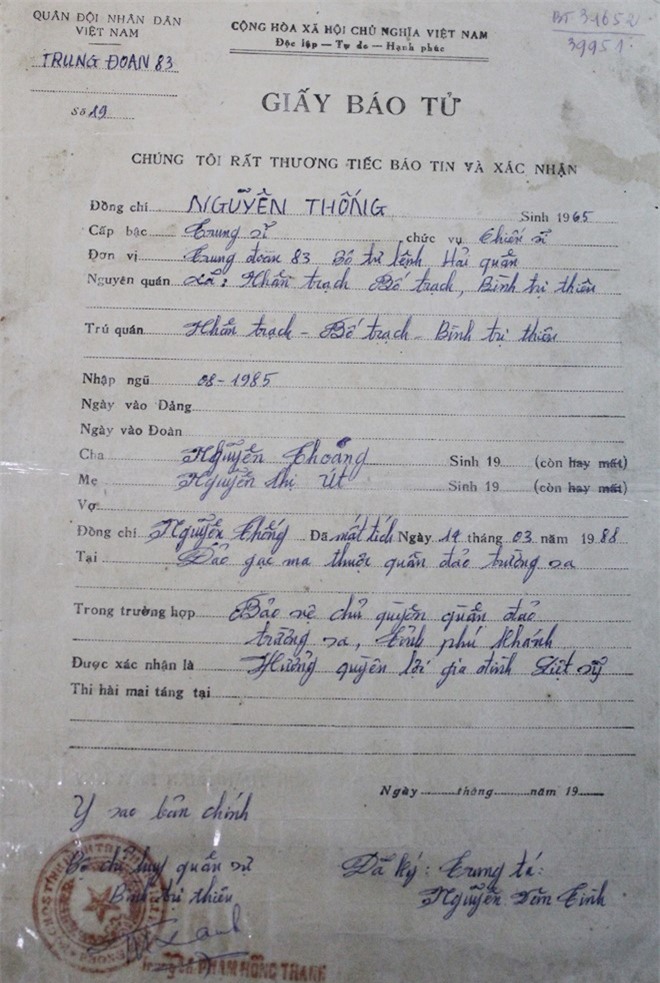 QUÂN ĐỘI NHÂN DÂN
VIỆT NAM
TRUNG ĐOÀN 83
Số 19
CỘNG HÒA XÃ HỘI CHỦ NGHĨA VIỆT NAM
Độc lập — Tự do — Hạnh phúc
BT 31652
39951
GIẤY BÁO TỬ
CHÚNG TÔI RẤT THƯƠNG TIẾC BÁO TIN VÀ XÁC NHẬN
Đồng chí NGUYỄN THỐNG Sinh 1965
Cấp bậc Trung sĩ chức vụ Chiến sĩ
Đơn vị Trung đoàn 83 Bộ tư lệnh Hải quân
Nguyên quán Xã: Nhân trạch Bố trạch, Bình trị thiên
Trú quán Nhân trạch - Bố trạch - Bình trị thiên
Nhập ngũ 08-1985
Ngày vào Đảng
Ngày vào Đoàn
Cha Nguyễn Khoáng Sinh 19 (còn hay mất)
Mẹ Nguyễn thị Út Sinh 19 (còn hay mất)
Vợ
Đồng chí Nguyễn Thống Đã mất tích Ngày 14 tháng 03 năm 1988
Tại Đảo gạc ma thuộc quần đảo trường sa
Trong trường hợp Bảo vệ chủ quyền quần đảo
trường sa, tỉnh phú khánh
Được xác nhận là Hưởng quyền lợi gia đình Liệt sỹ
Thi hài mai táng tại
Ngày tháng năm 19
Y sao bản chính
Bộ chỉ huy quân sự
Bình trị thiên
Đã ký: Trung tá:
Nguyễn Văn Tình
PHẠM HỒNG THANH